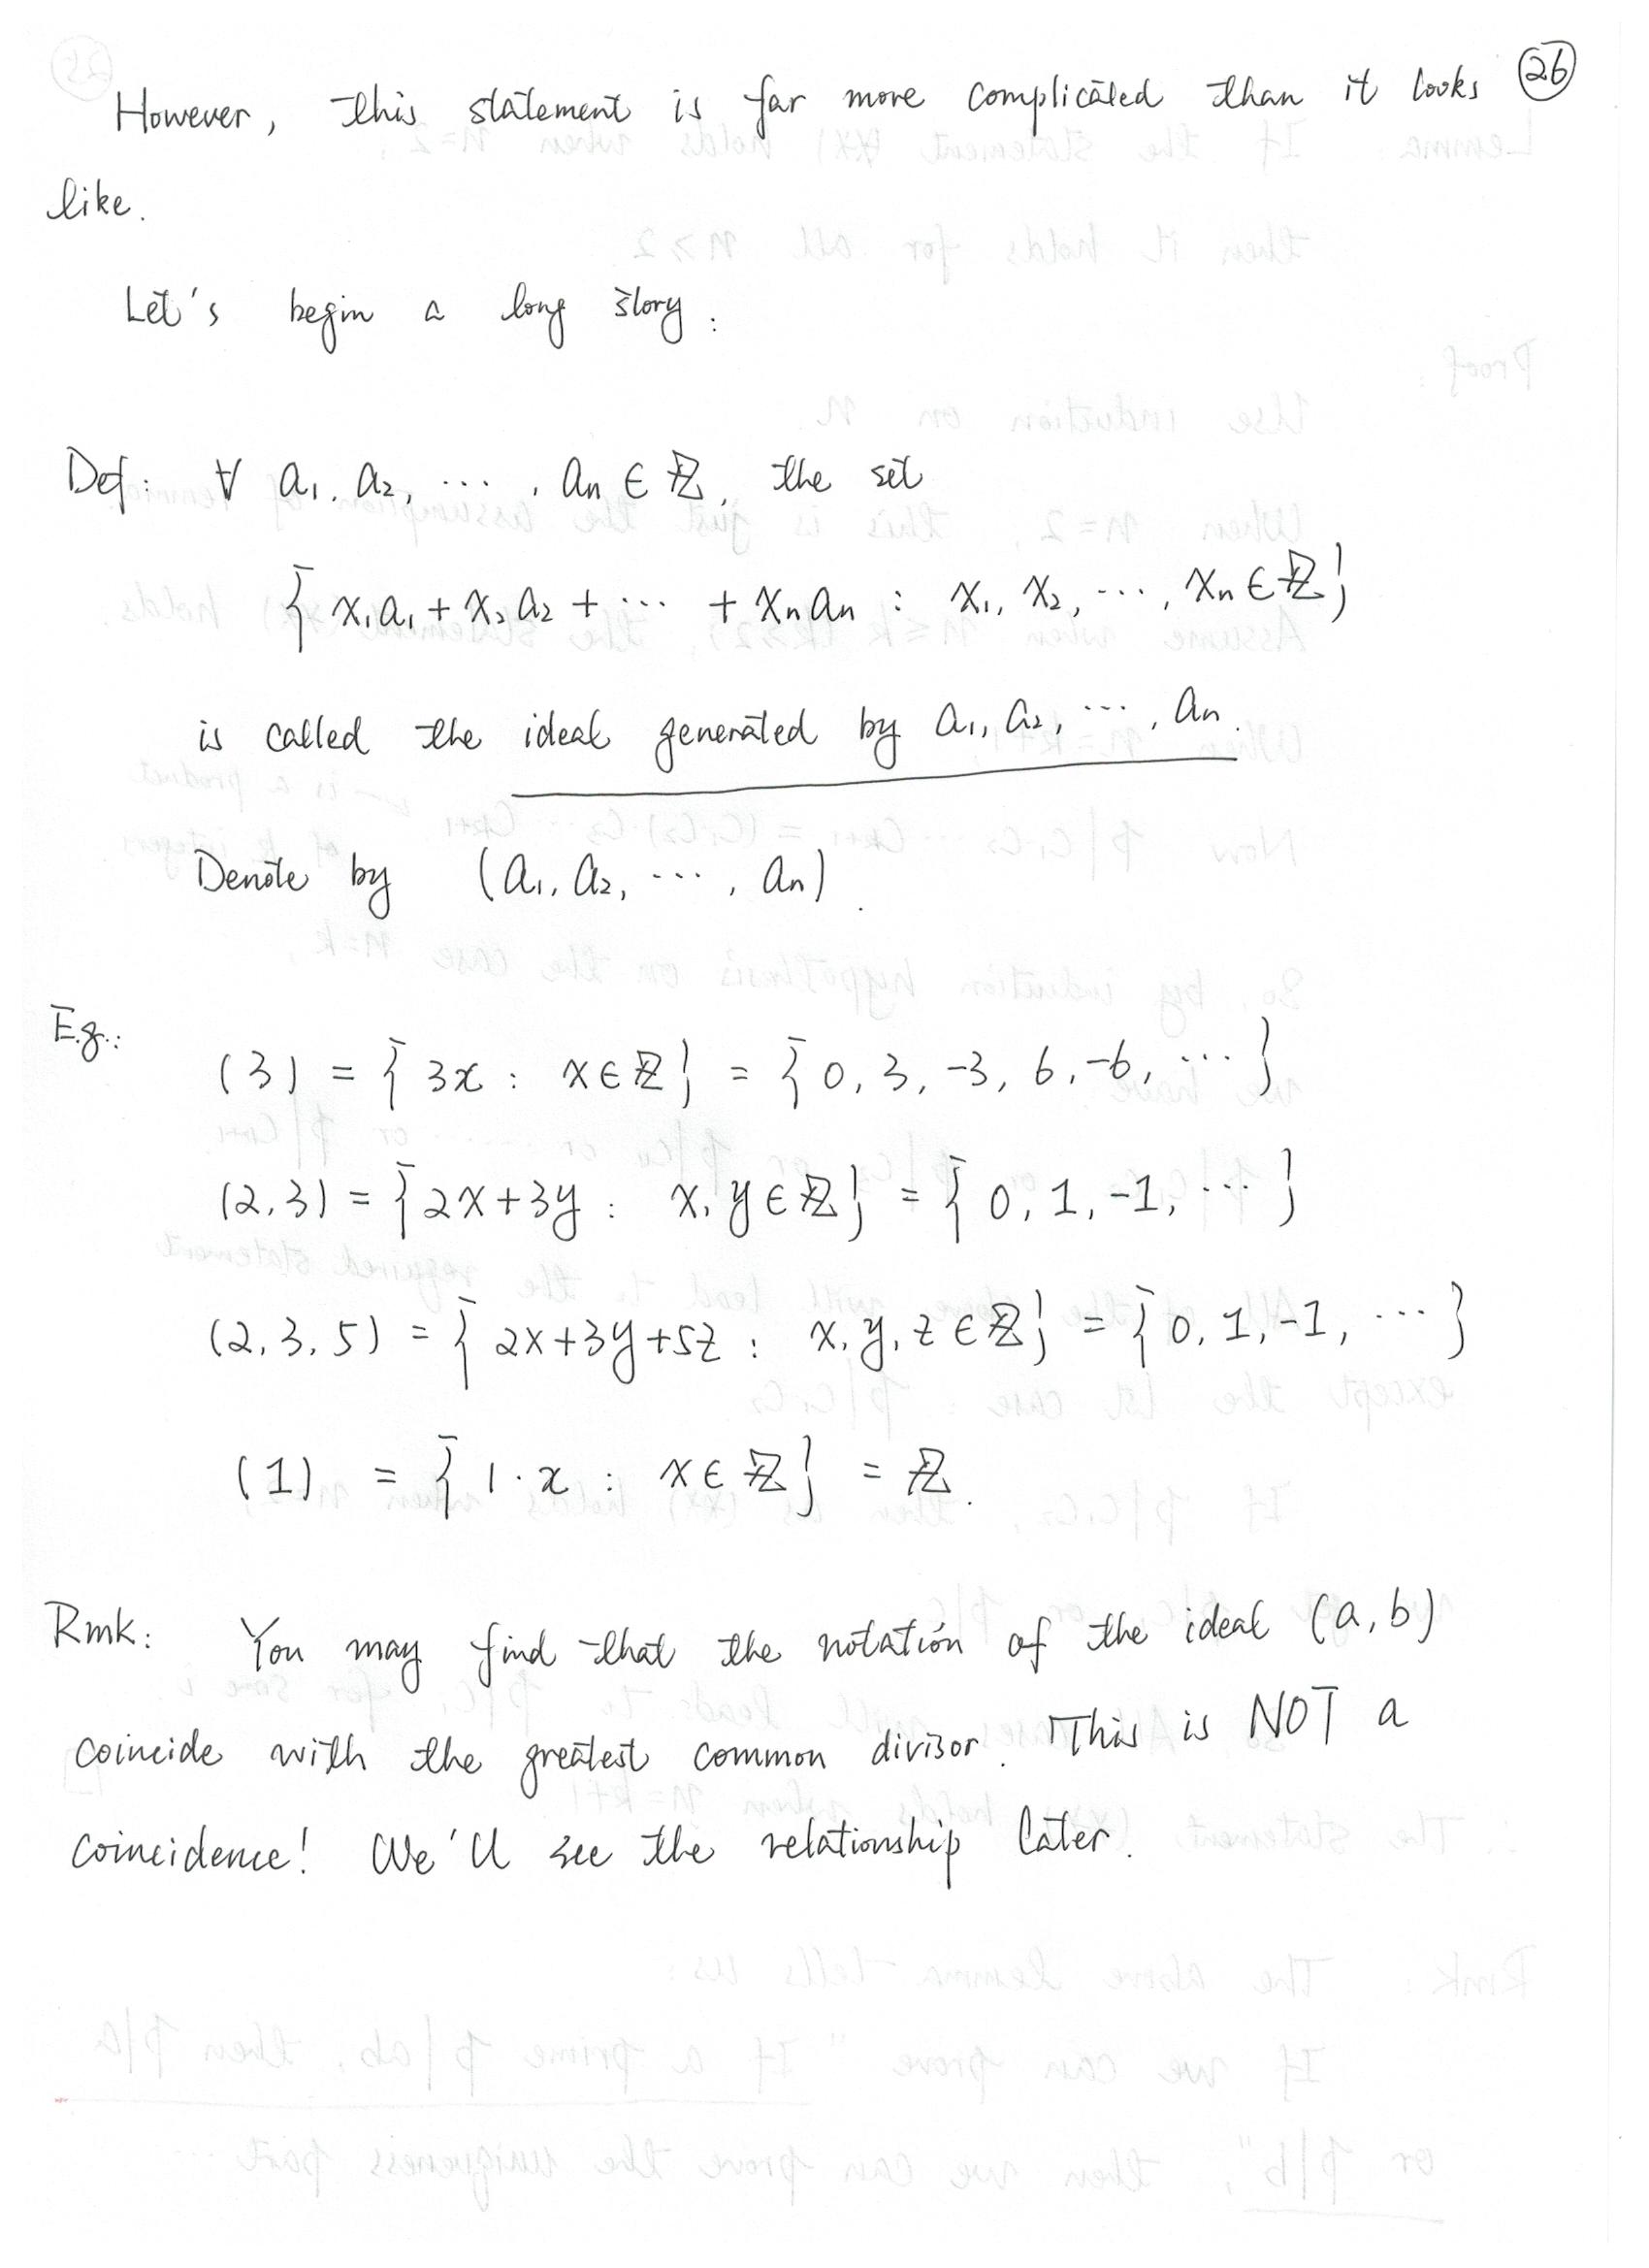 However, this statement is far more complicated than it looks 26
like.
Let's begin a long story:
Def: ∀ a₁, a₂, ⋯, aₙ ∈ ℤ, the set
{x₁a₁ + x₂a₂ + ⋯ + xₙaₙ : x₁, x₂, ⋯, xₙ ∈ ℤ}
is called the ideal generated by a₁, a₂, ⋯, aₙ.
Denote by (a₁, a₂, ⋯, aₙ).
E.g.:
(3) = {3x : x ∈ ℤ} = {0, 3, -3, 6, -6, ⋯}
(2, 3) = {2x+3y : x, y ∈ ℤ} = {0, 1, -1, ⋯}
(2, 3, 5) = {2x+3y+5z : x, y, z ∈ ℤ} = {0, 1, -1, ⋯}
(1) = {1·x : x ∈ ℤ} = ℤ.
Rmk: You may find that the notation of the ideal (a, b)
coincide with the greatest common divisor. This is NOT a
coincidence! We'll see the relationship later.